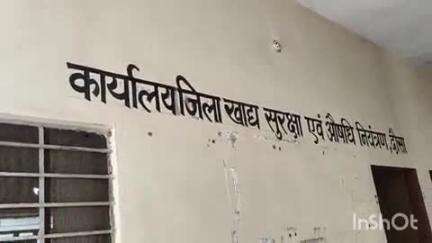 कार्यालय जिला खाद्य सुरक्षा एवं औषधि नियंत्रण, दौसा
InShOt